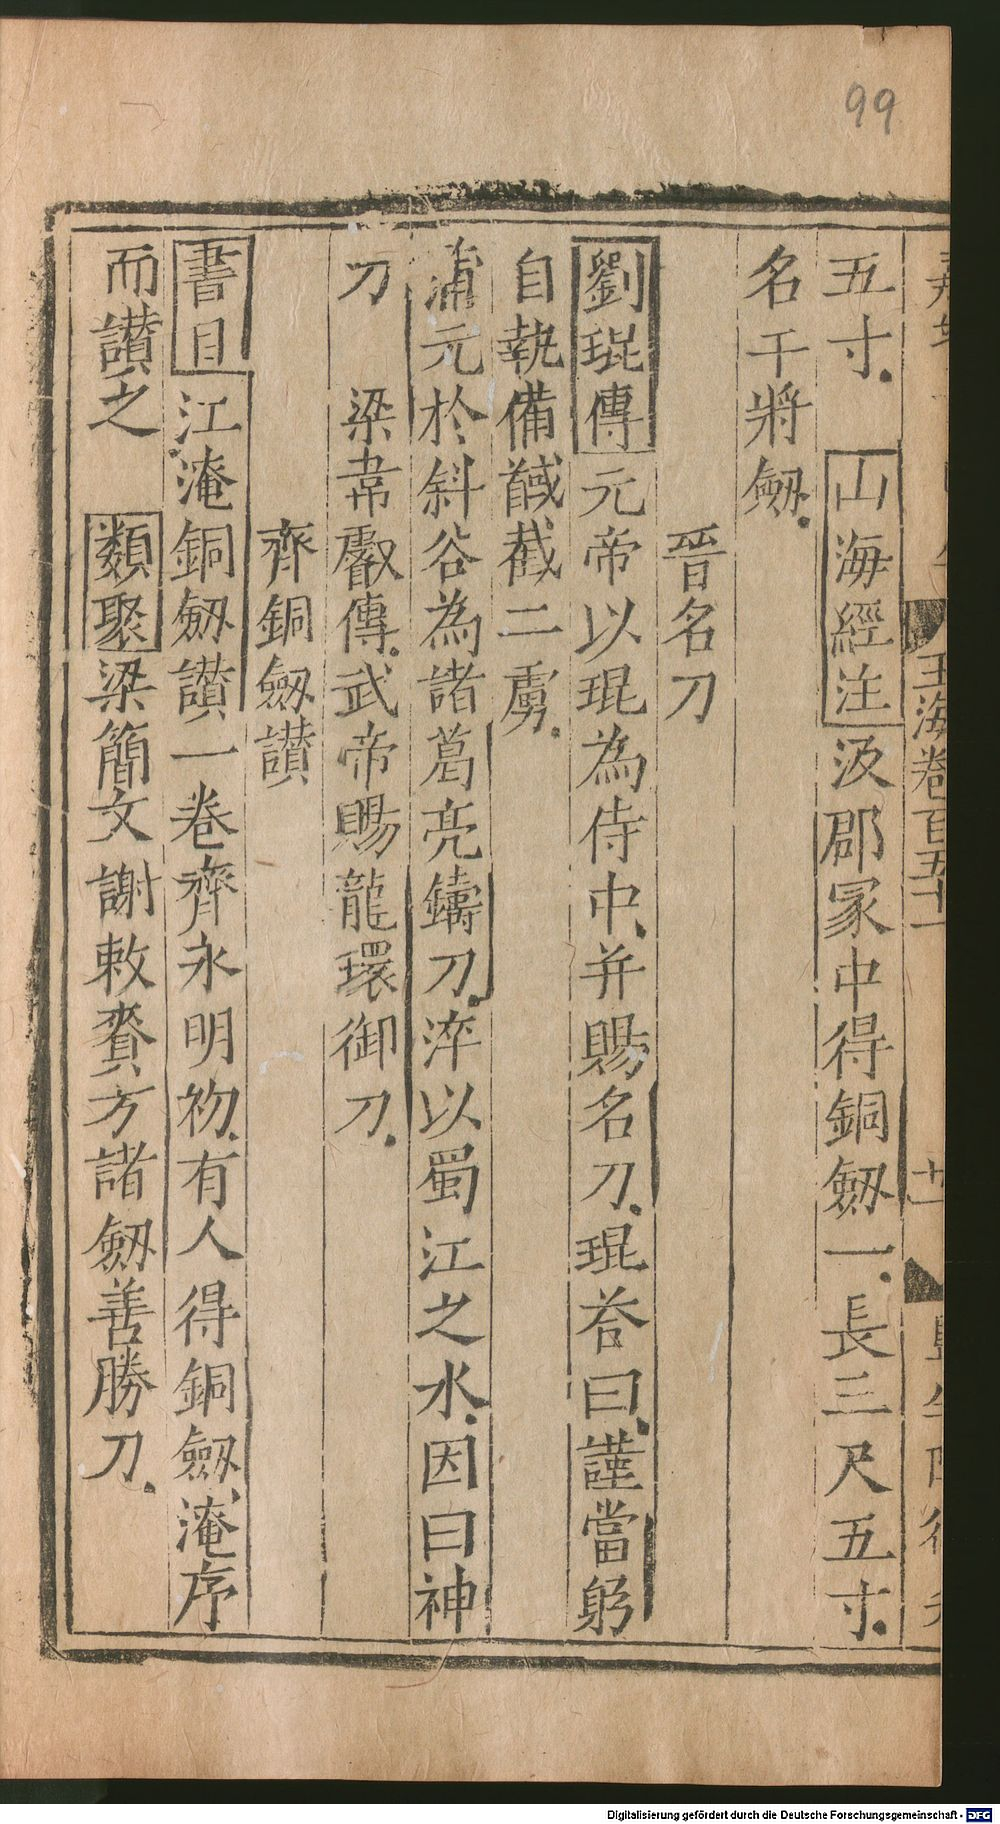 99
玉海卷百五十一
十一
五寸山海經注汲郡冢中得銅劒一長三尺五寸
名干將劒
晉名刀
劉琨傳元帝以琨為侍中并賜名刀琨荅曰謹當躬
自執備馘截二虜
蒲元於斜谷為諸葛亮鑄刀淬以蜀江之水因曰神
刀 梁韋叡傳武帝賜龍環御刀
齊銅劒讃
書目江淹銅劒讃一卷齊永明初有人得銅劒淹序
而讃之 類聚梁簡文謝敕賚方諸劒善勝刀
Digitalisierung gefördert durch die Deutsche Forschungsgemeinschaft - DFG